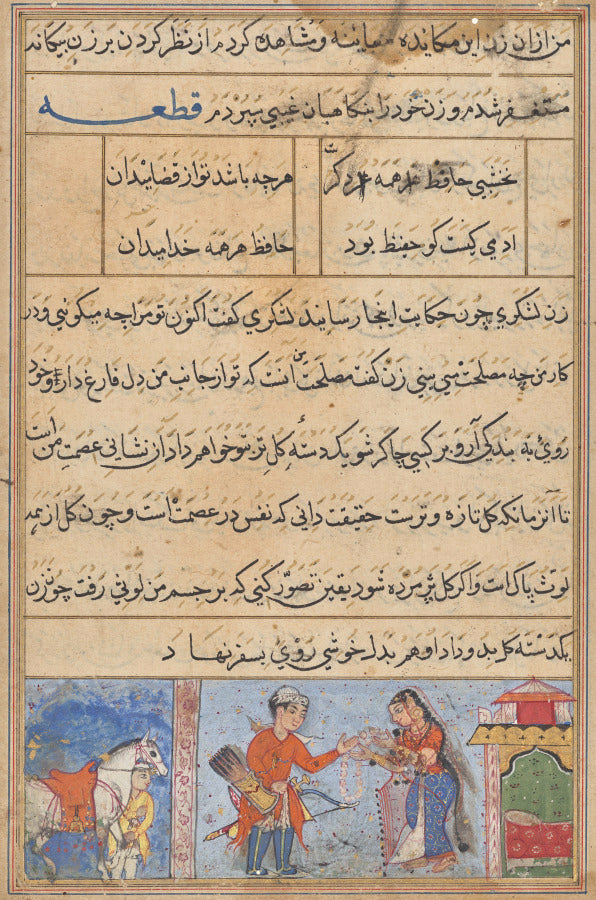 من ازان زن این مکایده معاینه و مشاهده کردم از نظر کردن بر زن بیکانه
مستغفر شدم و زن خود را بنکاهبان غیبی سپردم قطعه
نخشبی حافظ همه هرچه باشد تو از قضا میدان
ادمی کیست کو حفیظ بود حافظ هر همه خدا میدان
زن لشکری چون حکایت اینجا رسانید لشکری کفت اکنون تو مرا چه میکوئی و در
کار من چه مصلحت می بینی زن کفت مصلحت من انست که تو از جانب من دل فارغ داری و خود
روی به بندکی آر و بر کسی چاکر شو یک دسته کل تر بتو خواهم داد آن نشانی عصمت من است
تا آنزمانکه کل تازه و ترست حقیقت دانی که نفس در عصمت است و چون کل از همه
لوث پاک است و اکر کل پژمرده شود یقین تصوّر کنی که بر جسم من لوثی رفت چون زن
یکدسته کل بدو داد او هم بدل خوشی روی بسفر نهاد